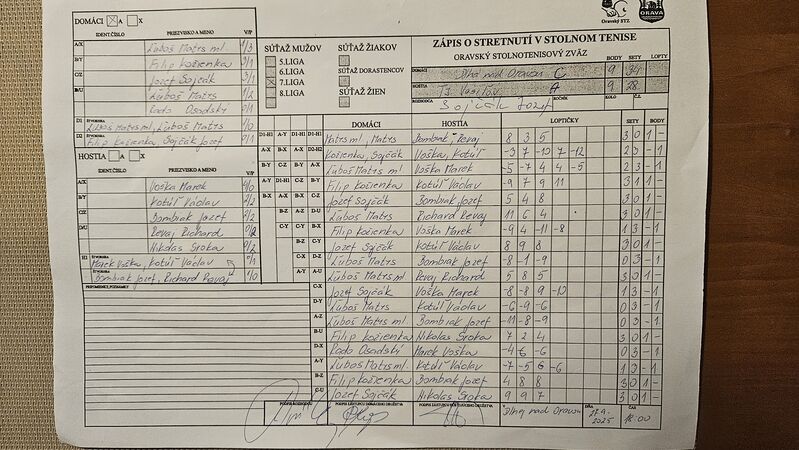 DOMÁCI A X
IDENT.ČÍSLO PRIEZVISKO A MENO V/P
A/X Ľuboš Matrs ml. 1/3
B/Y Filip Kožienka 3/1
C/Z Jozef Sojčák 3/1
D/U Ľuboš Matrs 1/2
Rado Osadský 0/1
D1 ŠTVORHRA Ľuboš Matrs ml, Ľuboš Matrs 1/0
D2 ŠTVORHRA Filip Kožienka, Sojčák Jozef 0/1
HOSTIA A X
IDENT.ČÍSLO PRIEZVISKO A MENO V/P
A/X Voška Marek 4/0
B/Y Kotúľ Václav
C/Z Bombiak Jozef 2/2
D/U Revaj Richard 0/2
Nikolas Sroka 0/2
H1 ŠTVORHRA Marek Voška, Kotúľ Václav
ŠTVORHRA Bombiak Jozef, Richard Revaj
PRIPOMIENKY, POZNÁMKY
SÚŤAŽ MUŽOV
5.LIGA
6.LIGA
7.LIGA
8.LIGA
SÚŤAŽ ŽIAKOV
SÚŤAŽ DORASTENCOV
SÚŤAŽ ŽIEN
Oravský STZ
ORAVA
ZÁPIS O STRETNUTÍ V STOLNOM TENISE
ORAVSKÝ STOLNOTENISOVÝ ZVÄZ BODY SETY LOPTY
DOMÁCI Dlhá nad Oravou C 9
HOSTIA A 9 28
ROZHODCA Sojčák Jozef ROČNÍK KOLO Č.Z.
DOMÁCI HOSTIA LOPTIČKY SETY BODY
Matrs ml, Matrs Bombiak Revaj 8 3 5 3 0 1 -
Kožienka, Sojčák Voška, Kotúľ -3 7 -13 7 -12 2 3 - 1
Ľuboš Matrs ml Voška Marek -5 -7 4 4 -5 2 3 - 1
Filip Kožienka Kotúľ Václav -9 7 9 11 3 1 1 -
Jozef Sojčák Bombiak Jozef 5 4 8 3 0 1 -
Ľuboš Matrs Richard Revaj 11 6 4 3 0 1 -
Filip Kožienka Voška Marek -9 4 -11 -8 1 3 - 1
Jozef Sojčák Kotúľ Václav 8 9 8 3 0 1 -
Ľuboš Matrs Bombiak Jozef -8 -1 -9 0 3 - 1
Ľuboš Matrs ml Revaj Richard 5 8 5 3 0 1 -
Jozef Sojčák Voška Marek -8 -8 9 -10 1 3 - 1
Ľuboš Matrs Kotúľ Václav -6 -9 -6 0 3 - 1
Ľuboš Matrs ml. Bombiak Jozef -11 -8 -9 0 3 - 1
Filip Kožienka Nikolas Sroka 7 2 4 3 0 1 -
Rado Osadský Marek Voška -4 -6 -6 0 3 - 1
Ľuboš Matrs ml Kotúľ Václav -7 -5 6 -6 1 3 - 1
Filip Kožienka Bombiak Jozef 4 8 8 3 0 1 -
Jozef Sojčák Nikolas Sroka 9 9 7 3 0 1 -
PODPIS ROZHODCU PODPIS ZÁSTUPCU DOMÁCEHO DRUŽSTVA
Dlhá nad Oravou DŇA 2025 ČAS